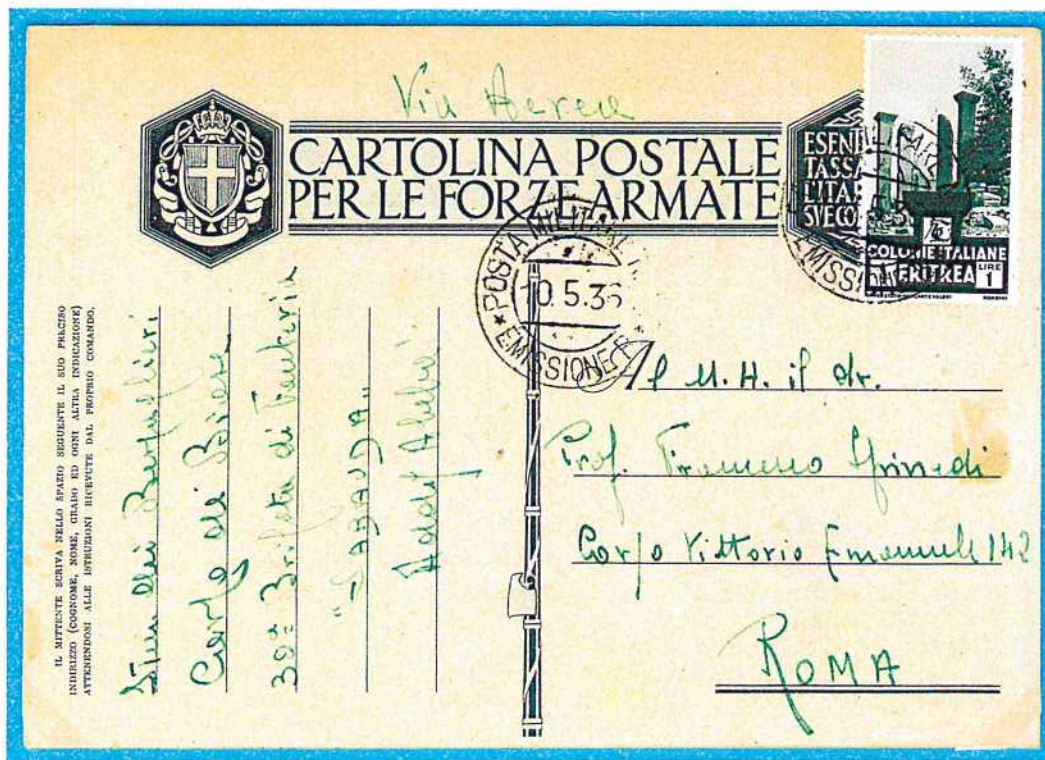 Via Aerea
CARTOLINA POSTALE
PER LE FORZE ARMATE
ESEN
TASSA
L'ITAL
SVE CO
COLONIE ITALIANE
ERITREA
LIRE
1
POSTA MILITARE
10.5.36
EMISSIONE
EMISSION
IL MITTENTE SCRIVA NELLO SPAZIO SEGUENTE IL SUO PRECISO
INDIRIZZO (COGNOME, NOME, GRADO ED OGNI ALTRA INDICAZIONE)
ATTENENDONI ALLE ISTRUZIONI RICEVUTE DAL PROPRIO COMANDO.
dei
Carlo di
30ª Brigata di Fanteria
"SABAUDA"
Al M. H. il dr.
Prof. Francesco
Corso Vittorio Emanuele 142
ROMA